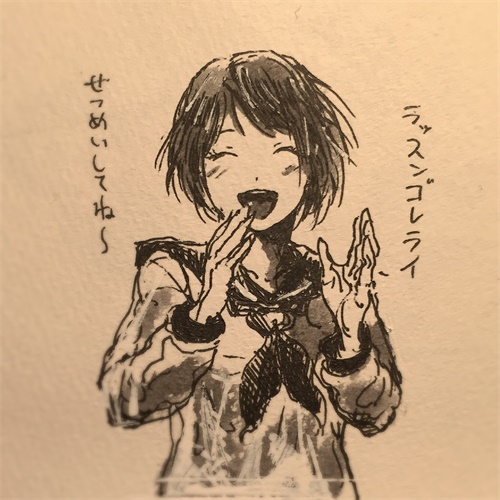 ラッスンゴレライ
せつめいしてね〜